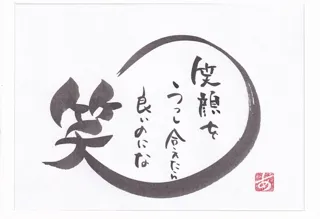 笑
笑顔を
うつし合えたら
良いのにな
あ